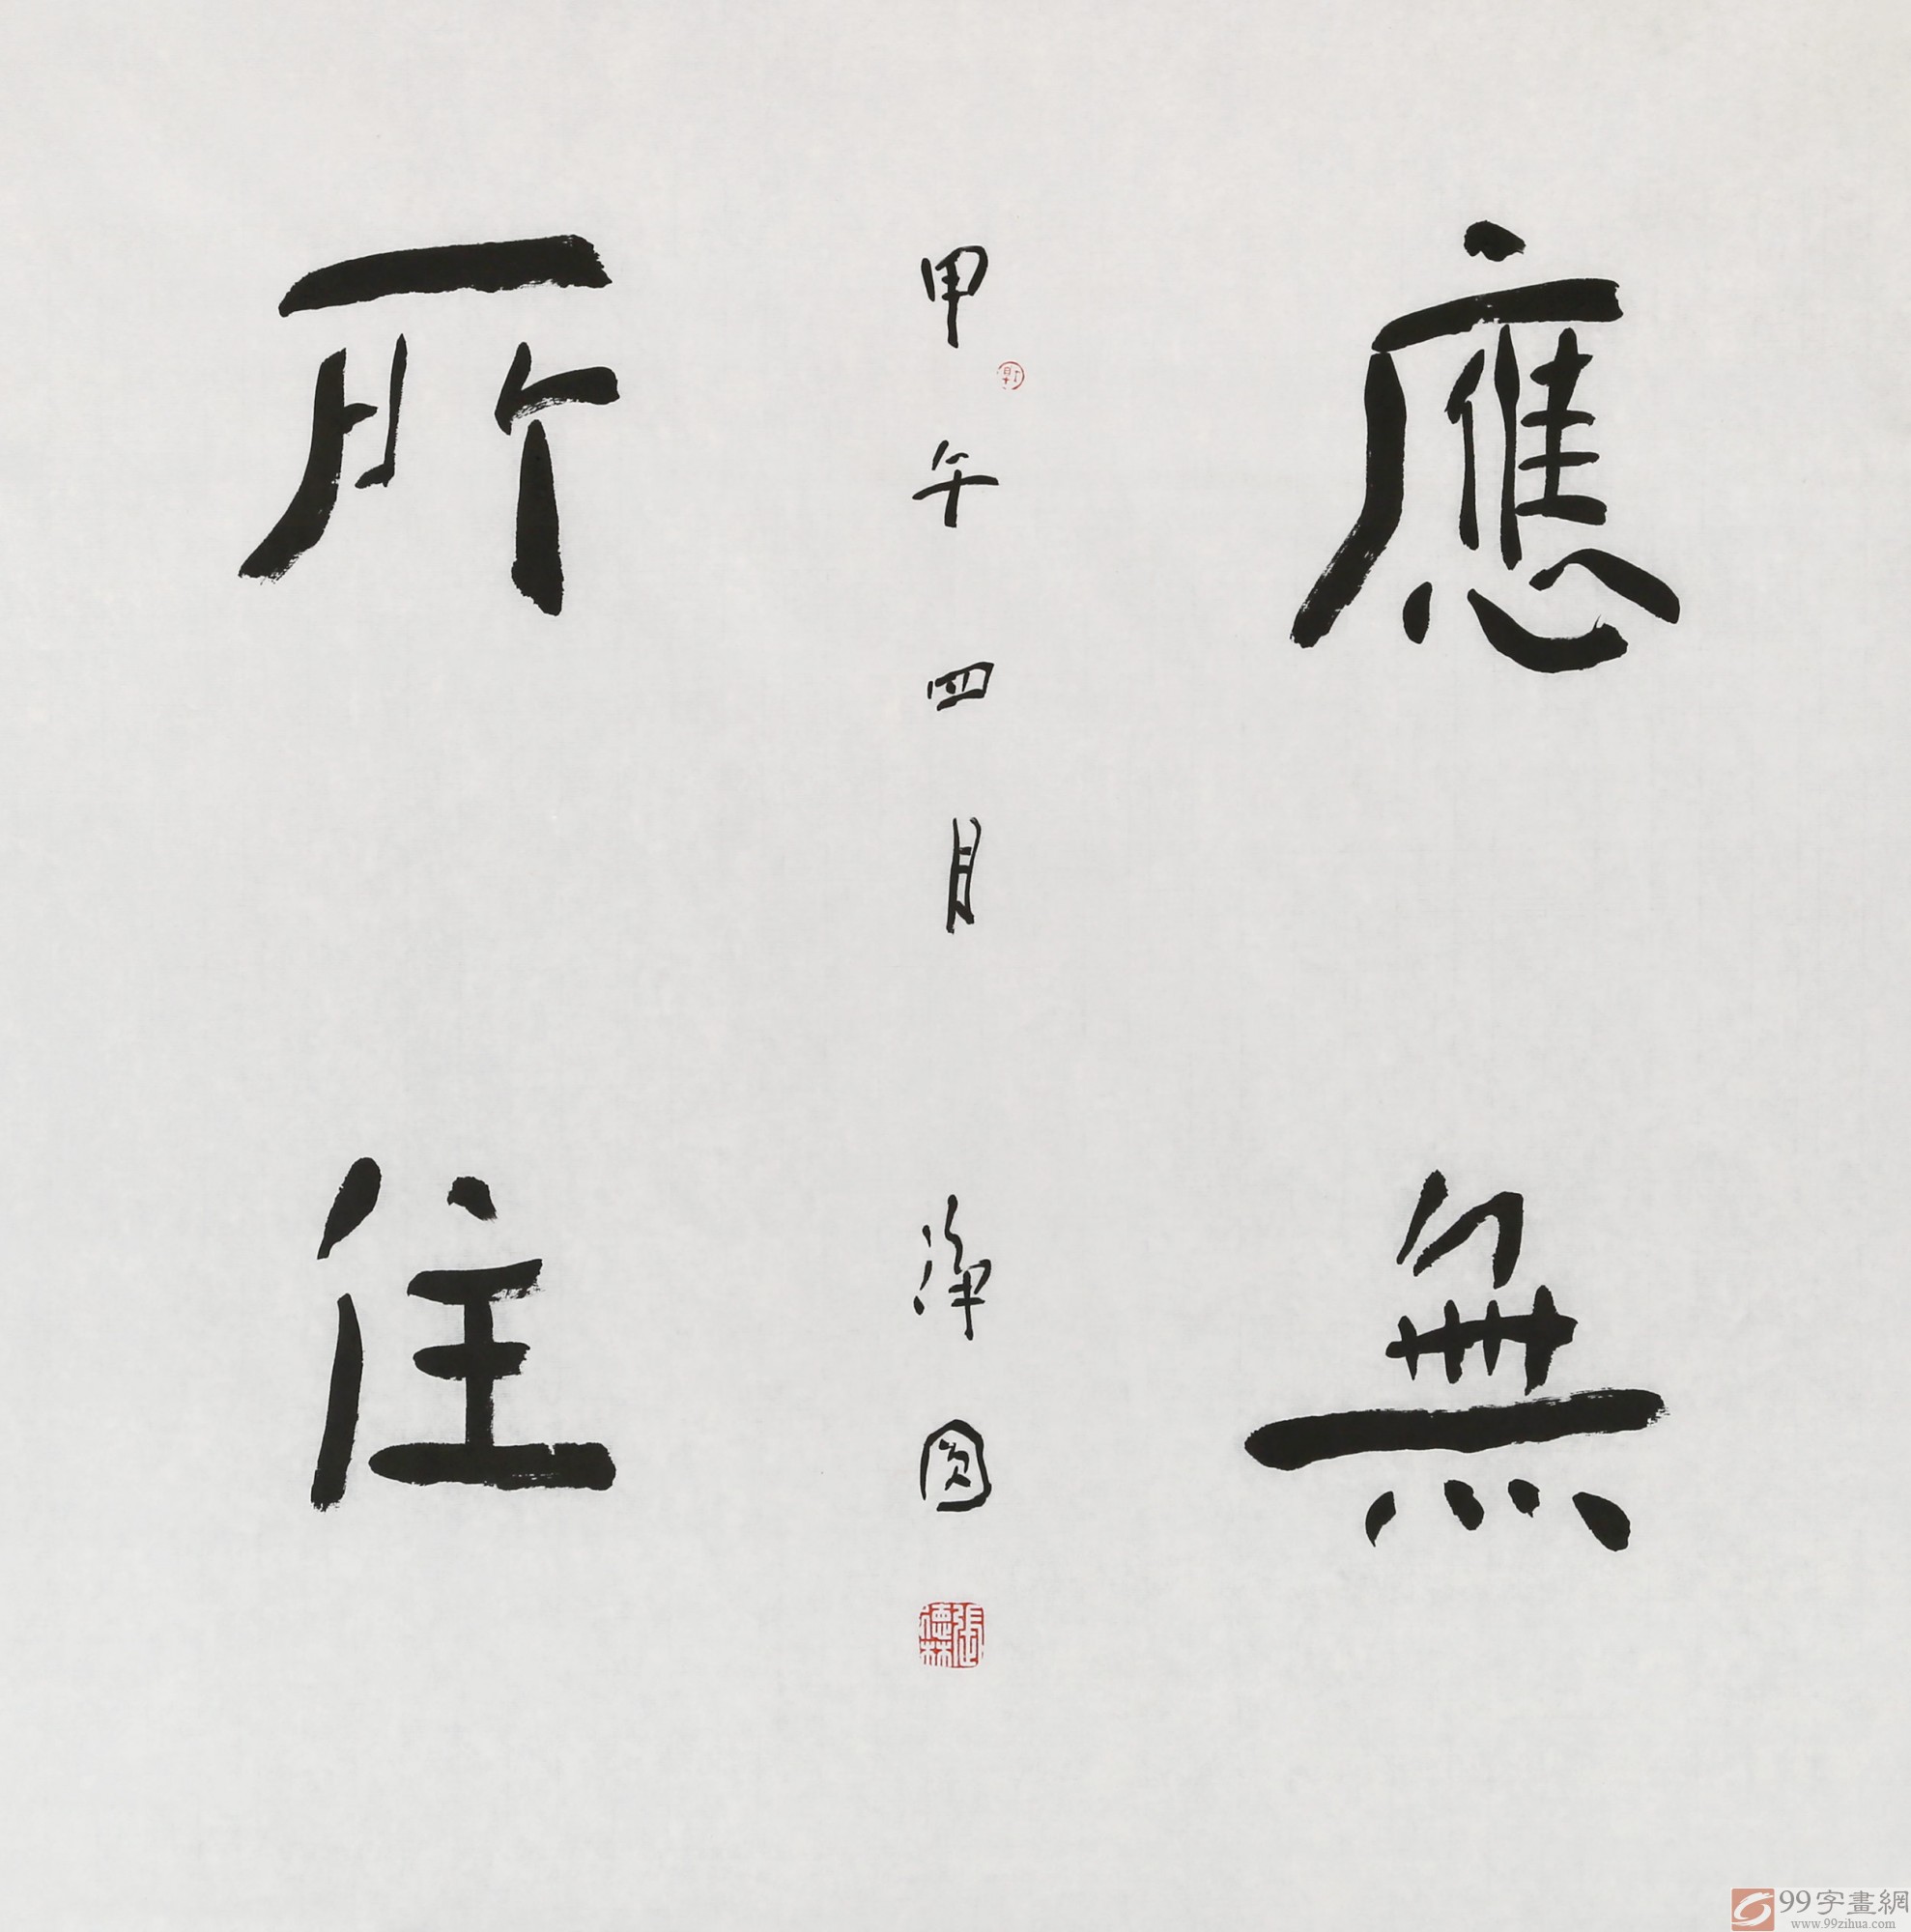 應無
甲午四月 淨圓
張德林
所住
99字畫網
www.99zihua.com